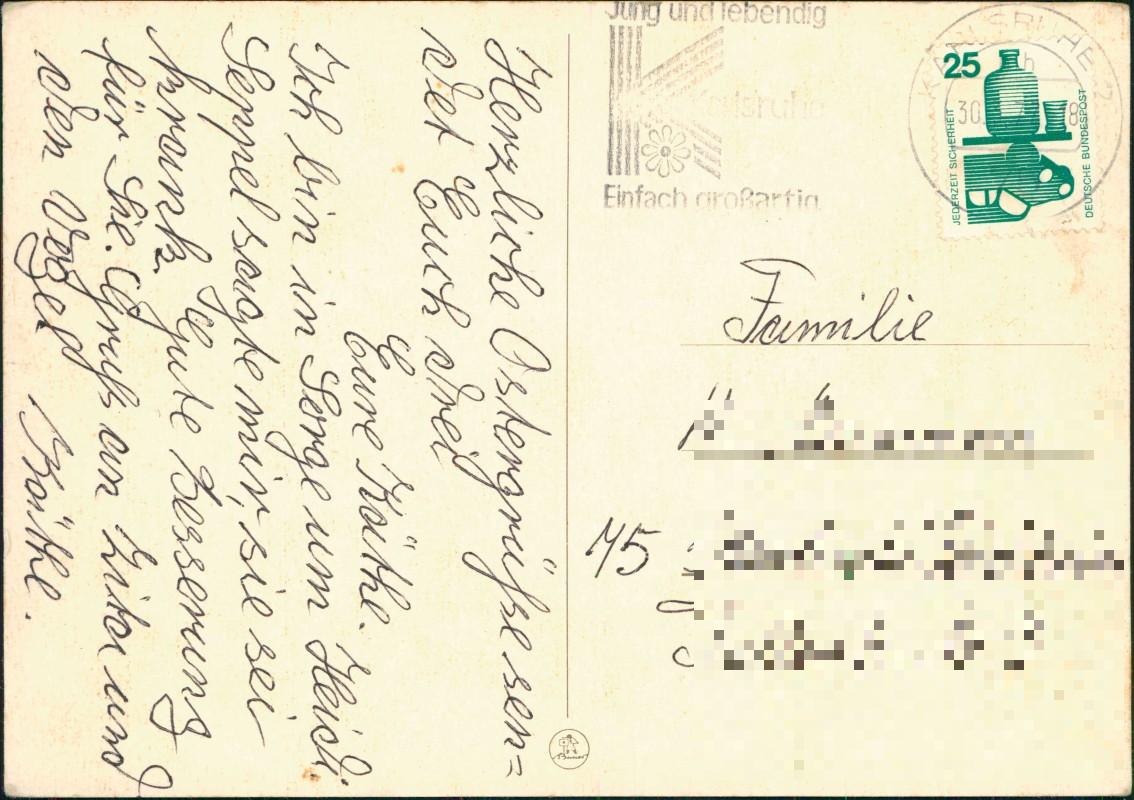 Herzliche Ostergrüße sen=
det Euch drei
Eure Käthe.
Ich bin in Sorge um Heidi.
Seppel sagte mir, sie sei
krank. Gute Besserung
für Sie. Gruß an und
den Vogel Käthe.
Jung und lebendig
Karlsruhe
Einfach großartig
KARLSRUHE 2
30.
25
JEDERZEIT SICHERHEIT
DEUTSCHE BUNDESPOST
Familie
75